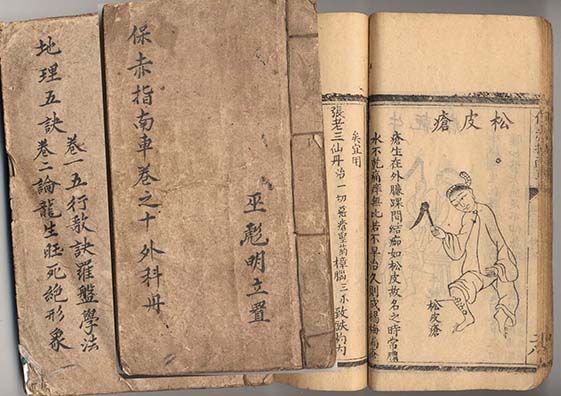 地理五訣
卷一五行歌訣羅盤學法
卷二論龍生旺死絕形象
保赤指南車卷之十外科丹
巫彪明立置
松皮瘡
瘡生在外臁踝間結痂如松皮故名之時常
水不乾痛癢無比若不早治久則成
松皮瘡
矣宜用
張老三仙丹治一切惡瘡